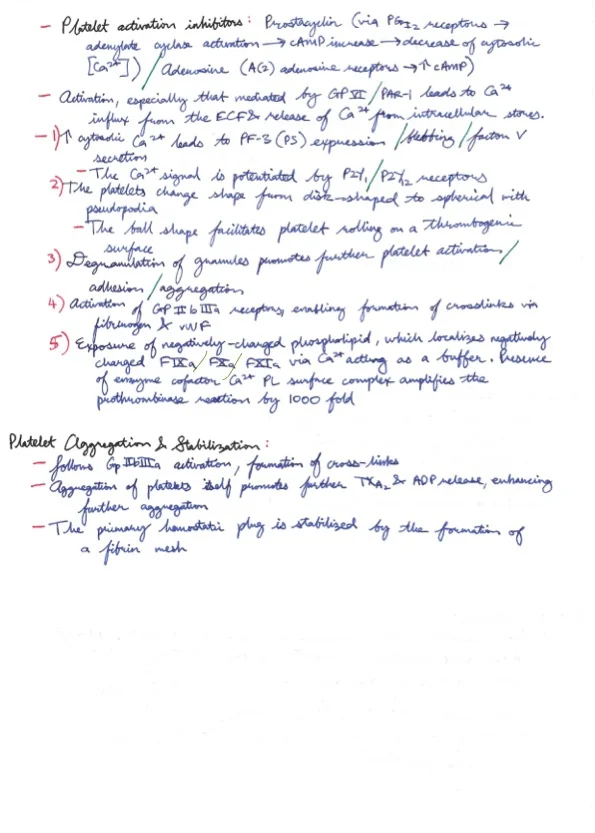 - Platelet activation inhibitors: Prostacyclin (via PGI2 receptors →
adenylate cyclase activation → cAMP increase → decrease of cytosolic
[Ca2+]) / Adenosine (A(2) adenosine receptors → ↑ cAMP)
- Activation, especially that mediated by GP VI / PAR-1 leads to Ca2+
influx from the ECF & release of Ca2+ from intracellular stores.
- 1) ↑ cytosolic Ca2+ leads to PF-3 (PS) expression / blebbing / factor V
secretion
- The Ca2+ signal is potentiated by P2Y1 / P2Y12 receptors
2) The platelets change shape from disk-shaped to spherical with
pseudopodia
- The ball shape facilitates platelet rolling on a thrombogenic
surface
3) Degranulation of granules promotes further platelet activation /
adhesion / aggregation
4) Activation of GP IIbIIIa receptors, enabling formation of crosslinks via
fibrinogen & vWF
5) Exposure of negatively-charged phospholipid, which localizes negatively
charged FIXa / FXa / FXIa via Ca2+ acting as a buffer. Presence
of enzyme cofactor Ca2+ PL surface complex amplifies the
prothrombinase reaction by 1000 fold
Platelet Aggregation & Stabilization:
- follows Gp IIbIIIa activation, formation of cross-links
- Aggregation of platelets itself promotes further TXA2 & ADP release, enhancing
further aggregation
- The primary hemostatic plug is stabilized by the formation of
a fibrin mesh